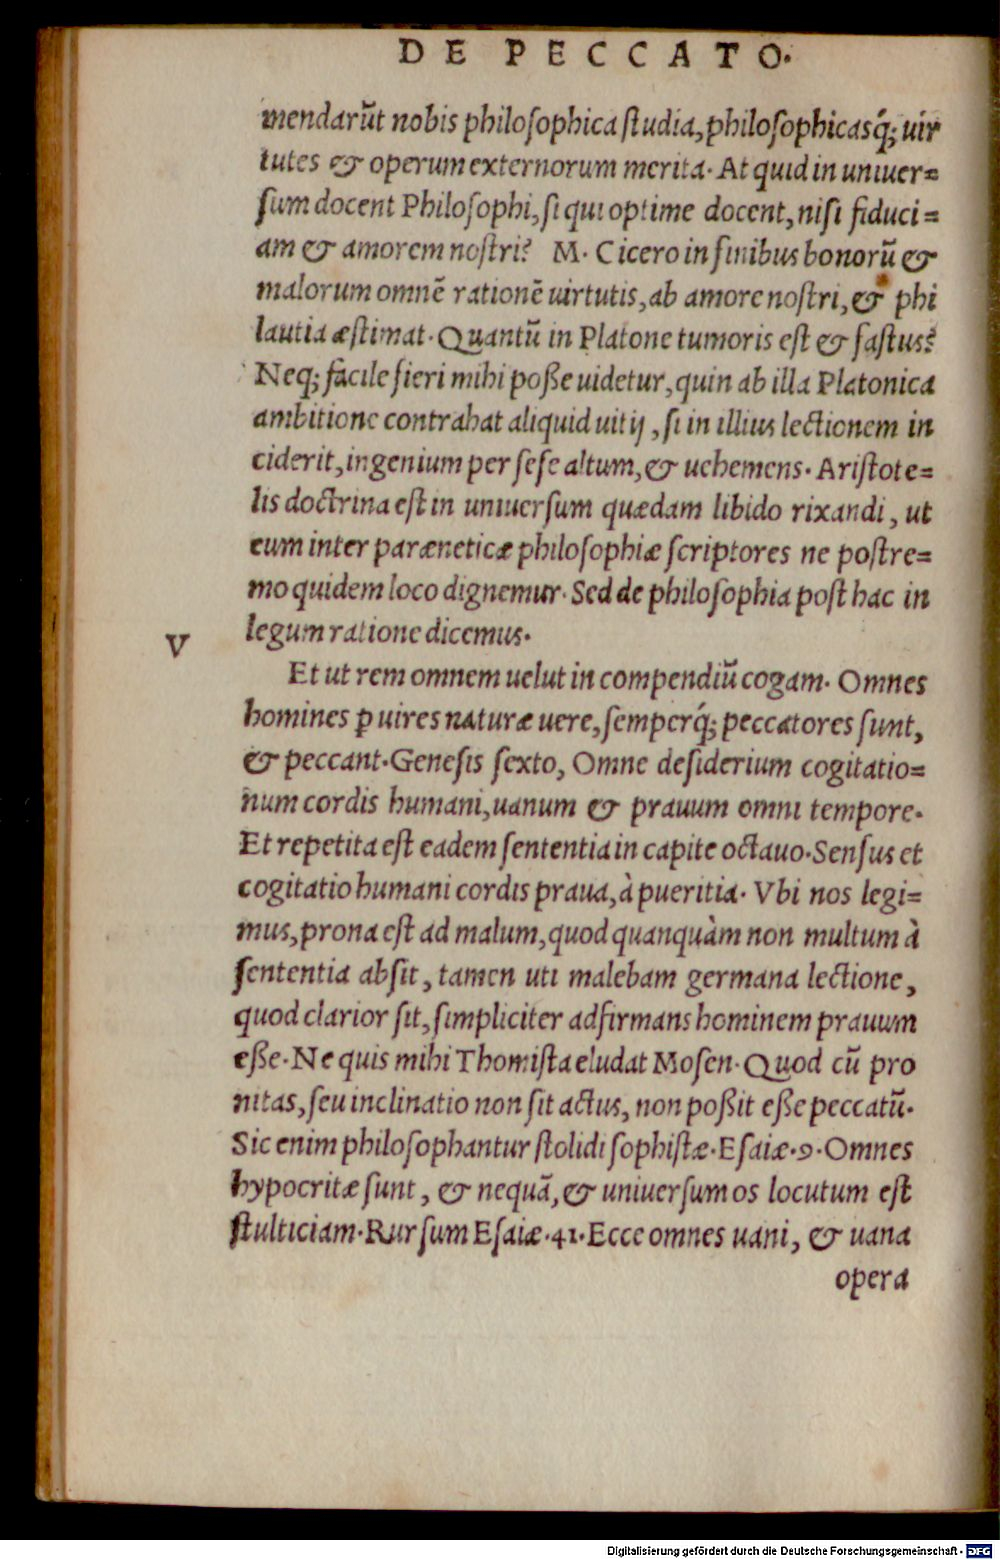 DE PECCATO.
mendarūt nobis philoſophica ſtudia, philoſophicasq́; uir
tutes & operum externorum merita. At quid in uniuer=
ſum docent Philoſophi, ſi qui optime docent, niſi fiduci=
am & amorem noſtri? M. Cicero in finibus bonorū &
malorum omnē rationē uirtutis, ab amore noſtri, & phi
lautia æſtimat. Quantū in Platone tumoris eſt & faſtus?
Neq; facile fieri mihi poſſe uidetur, quin ab illa Platonica
ambitione contrahat aliquid uitij, ſi in illius lectionem in
ciderit, ingenium per ſeſe altum, & uehemens. Ariſtote=
lis doctrina eſt in uniuerſum quædam libido rixandi, ut
eum inter paræneticæ philoſophiæ ſcriptores ne poſtre=
mo quidem loco dignemur. Sed de philoſophia poſt hac in
legum ratione dicemus.
V
Et ut rem omnem uelut in compendiū cogam. Omnes
homines ꝑ uires naturæ uere, ſemperq́; peccatores ſunt,
& peccant. Geneſis ſexto, Omne deſiderium cogitatio=
num cordis humani, uanum & prauum omni tempore.
Et repetita eſt eadem ſententia in capite octauo. Senſus et
cogitatio humani cordis praua, à pueritia. Vbi nos legi=
mus, prona eſt ad malum, quod quanquàm non multum à
ſententia abſit, tamen uti malebam germana lectione,
quod clarior ſit, ſimpliciter adfirmans hominem prauum
eſſe. Ne quis mihi Thomiſta eludat Moſen. Quod cū pro
nitas, ſeu inclinatio non ſit actus, non poſſit eſſe peccatū.
Sic enim philoſophantur ſtolidi ſophiſtæ. Eſaiæ. 9. Omnes
hypocritæ ſunt, & nequā, & uniuerſum os locutum eſt
ſtulticiam. Rurſum Eſaiæ. 41. Ecce omnes uani, & uana
opera
Digitalisierung gefördert durch die Deutsche Forschungsgemeinschaft - DFG